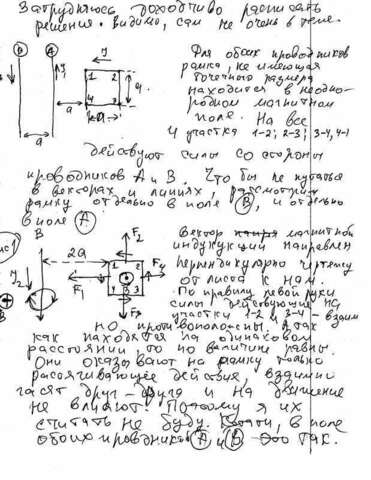 Затрудняюсь доходчиво расписать
решения. видимо, сам не очень в теме.
B A
I
1 2
4 3
a a a
Для обоих проводников
рамка, не имеющая
точечного размера
находится в неодно-
родном магнитном
поле. На все
4 участка 1-2; 2-3; 3-4, 4-1
действуют силы со стороны
проводников А и В. Что бы не путаться
в векторах и линиях, рассмотрим
рамку отдельно в поле B, и отдельно
в поле A
B
2a
F2
1 2
F1 F4
4 3
F3
Вектор магнитной
индукции направлен
перпендикулярно чертежу
от листа к нам.
По правилу левой руки
силы действующие на
участки 1-2 и 3-4 - взаим
но противоположны. А так
как находятся на одинаковом
расстоянии, то по величине равны.
Они оказывают на рамку только
растягивающее действие, взаимно
гасят друг-друга и на движение
не влияют. Поэтому я их
считать не буду. Кстати, в поле
обоих проводников A и B это так.